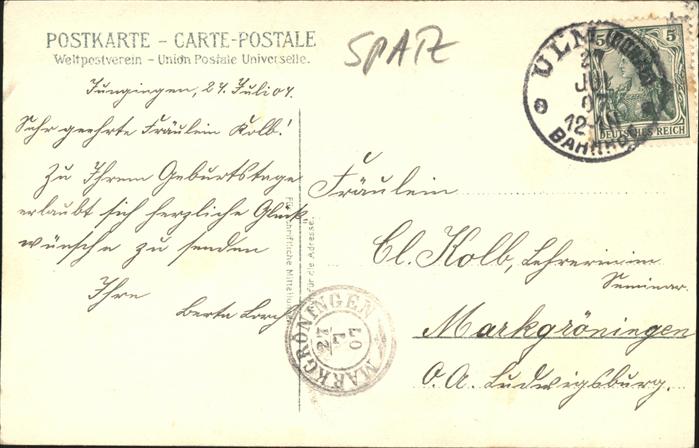 POSTKARTE – CARTE-POSTALE
Weltpostverein – Union Postale Universelle.
SPATZ
Jungingen, 27. Juli 07.
Sehr geehrte Fräulein Kolb!
Zu Ihrem Geburtstage
erlaubt sich herzliche Glück
wünsche zu senden
Ihre
Berta Lorch
Für schriftliche Mitteilungen
für die Adresse.
Fräulein
Cl. Kolb, Lehrerin im
Seminar.
Markgröningen
O.A. Ludwigsburg.
ULM
27
JUL
07
12-1N
BAHNHOF
5
5
DEUTSCHES REICH
MARKGRÖNINGEN
27
7
07